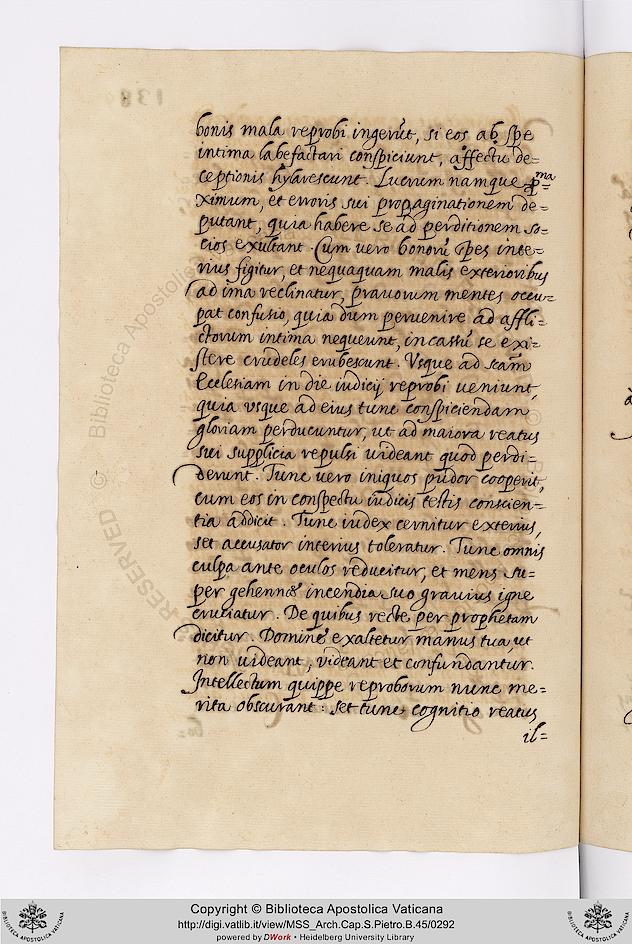 bonis mala reprobi ingerūt, si eos ab spe
intima labefactari conspiciunt, affectu de=
ceptionis hylarescunt. Lucrum namque p̄=ma
ximum, et erroris sui propaginationem de=
putant, quia habere se ad perditionem so=
cios exultant. Cum vero bonorū spes inte=
rius figitur, et nequaquam malis exterioribus
ad ima reclinatur, prauorum mentes occu=
pat confusio, quia dum peruenire ad affli=
ctorum intima nequeunt, incassū se exi=
stere crudeles erubescunt. Vsque ad scām
Ecclesiam in die iudicij reprobi ueniunt,
quia vsque ad eius tunc conspiciendam
gloriam perducuntur, ut ad maiora reatus
sui supplicia repulsi uideant quod perdi=
derunt. Tunc vero iniquos pudor cooperit,
cum eos in conspectu iudicis testis conscien=
tia addicit. Tunc iudex cernitur exterius,
set accusator interius toleratur. Tunc omnis
culpa ante oculos reducitur, et mens su=
per gehennæ incendia suo grauius igne
cruciatur. De quibus recte per prophetam
dicitur. Domine exaltetur manus tua, ut
non uideant, videant et confundantur.
Intellectum quippe reproborum nunc me=
rita obscurant: set tunc cognitio reatus
il=
RESERVED © Biblioteca Apostolica
Copyright © Biblioteca Apostolica Vaticana
http://digi.vatlib.it/view/MSS_Arch.Cap.S.Pietro.B.45/0292
powered by DWork • Heidelberg University Library